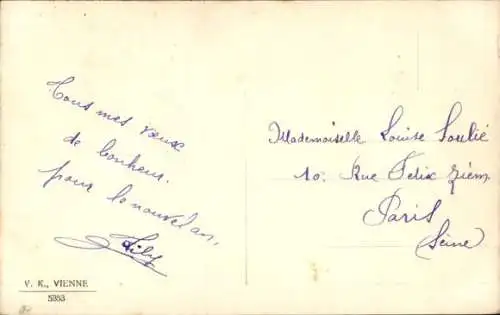 Tous mes vœux
de bonheur.
pour le nouvel an.
Lily
V. K., VIENNE
5353
Mademoiselle Louise Soulié
10. Rue Felix Ziem.
Paris
(Seine)